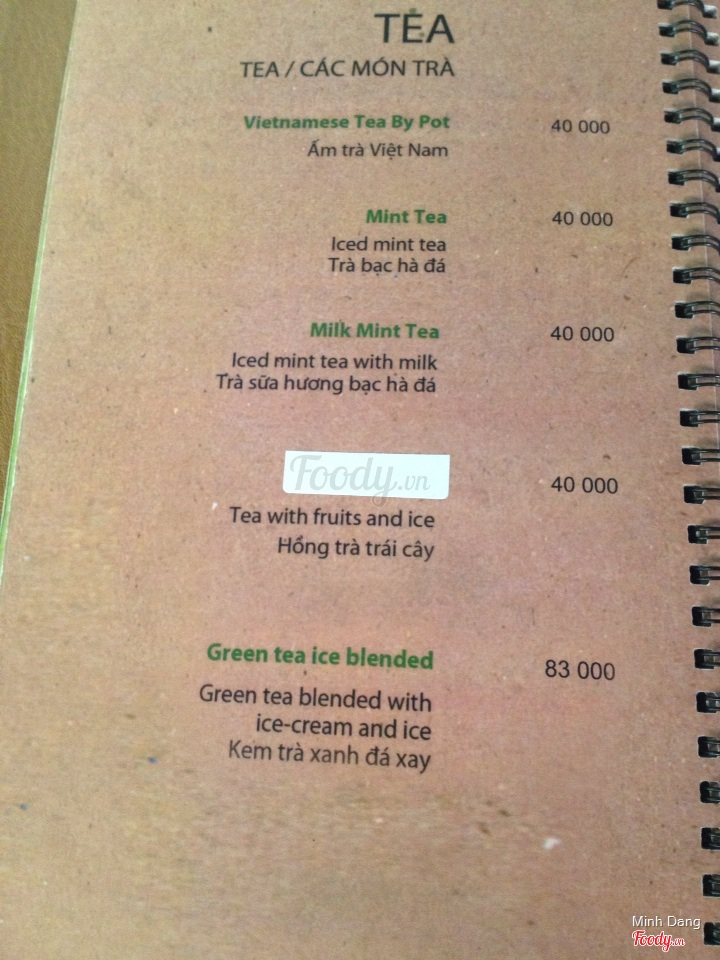 TEA
TEA / CÁC MÓN TRÀ
Vietnamese Tea By Pot 40 000
Ấm trà Việt Nam
Mint Tea 40 000
Iced mint tea
Trà bạc hà đá
Milk Mint Tea 40 000
Iced mint tea with milk
Trà sữa hương bạc hà đá
Foody.vn 40 000
Tea with fruits and ice
Hồng trà trái cây
Green tea ice blended 83 000
Green tea blended with
ice-cream and ice
Kem trà xanh đá xay
Minh Dang
Foody.vn